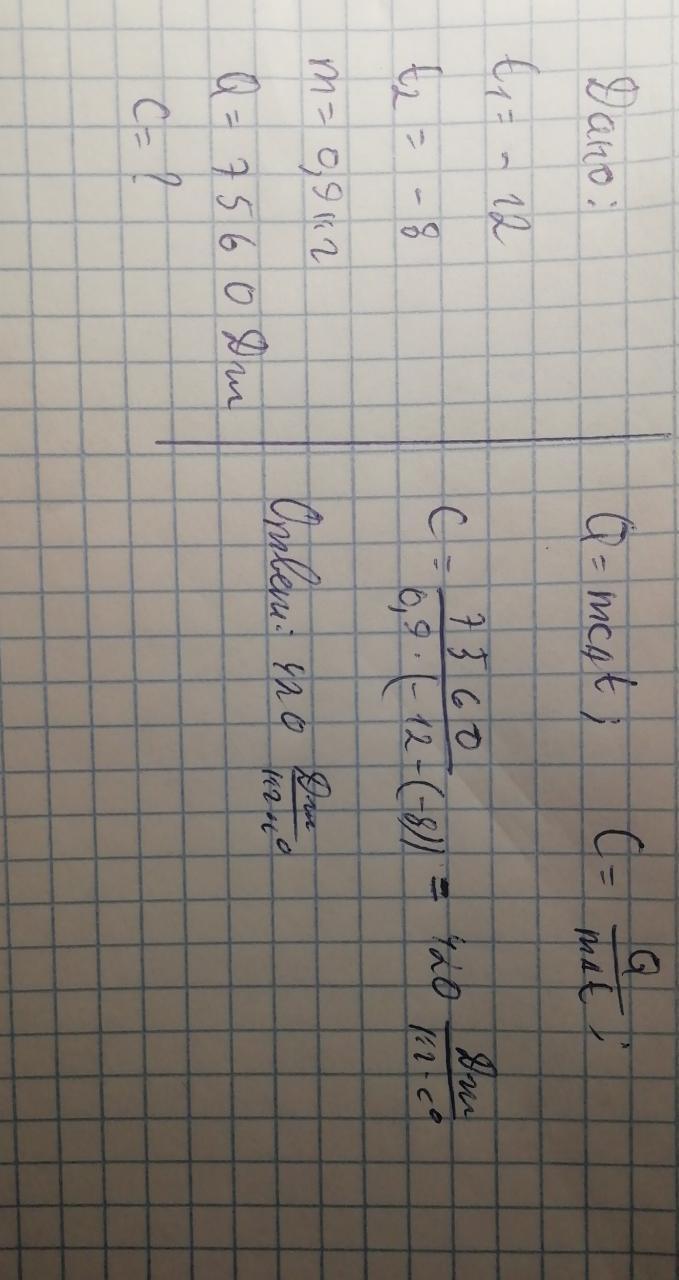 Дано:
t₁ = - 12
t₂ = - 8
m = 0,9 кг
Q = 7560 Дж
C = ?
Q = mc∆t; C = Q/m∆t;
C = 7560/0,9·(-12-(-8)) = 420 Дж/кг·c°
Ответ: 420 Дж